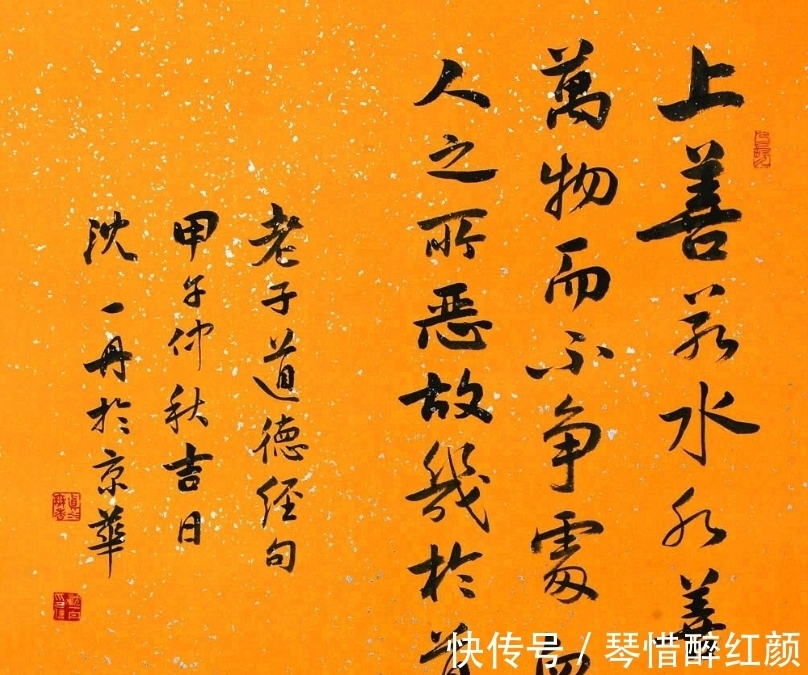 上善若水水善
萬物而不争處
人之所恶故幾於
老子道德經句
甲午仲秋吉日
沈一丹於京華
快传号 / 琴惜醉红颜